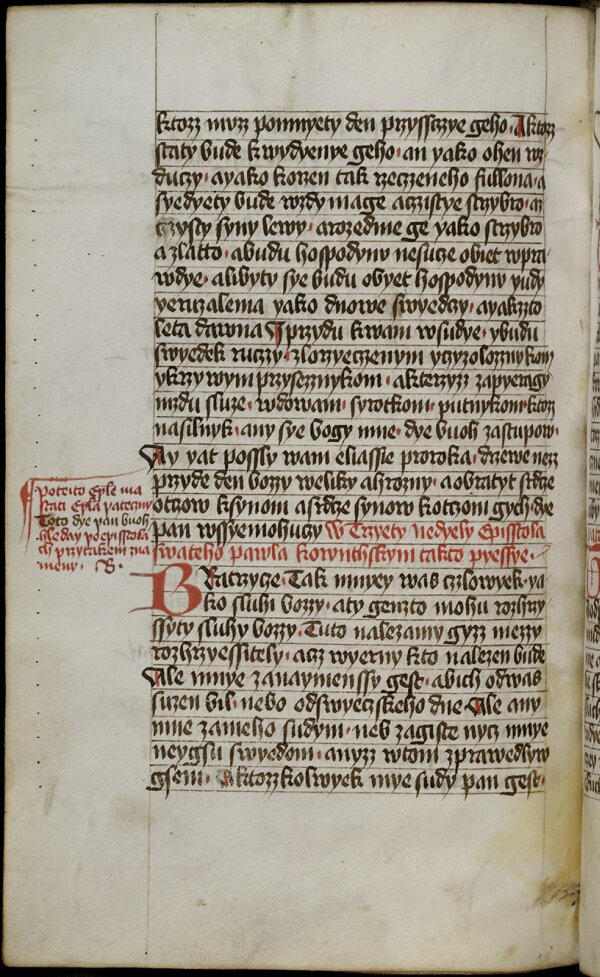 ktozz muzz pomnyety den przyssczye geho · A ktozz
staty bude k wydyenye geho · an yako ohen wz
duczy · a yako korzen tak rzeczeneho fullona · a
syedyety bude wzdy mage a czistye strzybro · a
czysty syny lewy · a rozedme ge yako strzybro
a zlatto · a budu hospodynu nesucze obiet w pra
wdye · a libyty sye budu obyet hospodynu yudy
yeruzalema yako dnowe swyedczy · a yakzto
leta dawna A przydu k wam w sudye · y budu
swyedek ruczy · zlorzyeczenym y czyzoloznykom
y krzywym przyseznykom · a kterzyzz zapyeragy
mzdu sluze · wdowam · syrotkom · putnykom · ktozz
nasilnyk · any sye bogy mne · dye buoh zastupow ·
Ay yat possly wam eliassie proroka · drzewe nezz
przyde den bozzy weliky a hrozny · a obratyt srdcze
otczow k synom a srdcze synow k otczom gych · dye
pan wssyemohuczy W Trzyety nedyely Episstola
swateho pawla korwnthskym takto pyessye ·
Bratrzycze · Tak mnyey was czlowyek · ya
ko sluhi bozzy · a ty genzto mohu rozhrzy
ssyty sluhy bozzy · Tuto nalezamy gyzz mezzy
rozhrzyessitely · acz wyerny kto nalezen bude
Ale mnye za naymenssy gest · abich od was
suzen bil · nebo od swyeczskeho dne Ale any
mne zameho sudym · neb zagiste nycz mnye
neygsu swyedom · anyzz w tom zprawedlyw
gsem · A ktozz kolwyek mye sudy pan gest ·
Poteito Eple ma
stati Epla pateczny
Toto dye pan buoh
hleday po episstola
ch przytakem zna
meny · B ·